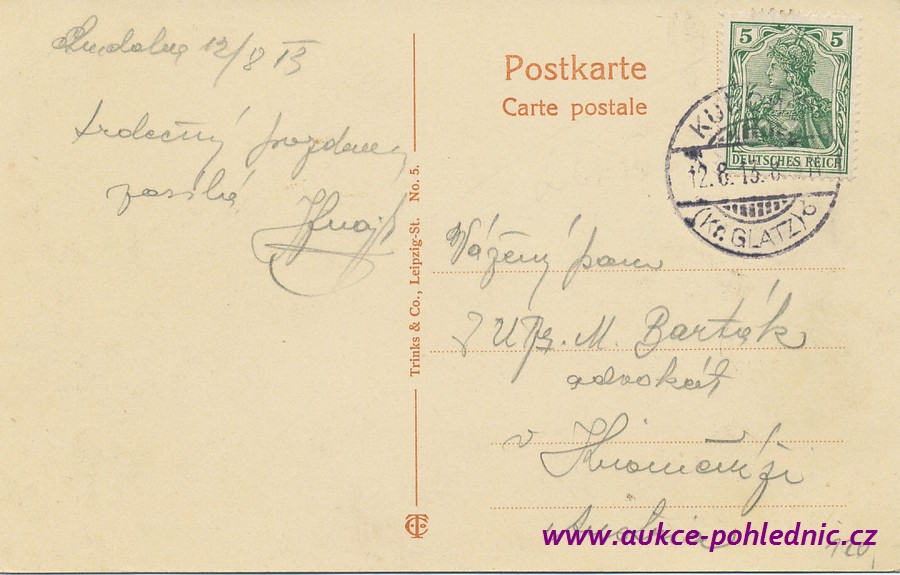 12/8 13
srdečný pozdrav
zasílá
Postkarte
Carte postale
5 5
DEUTSCHES REICH
KU
12.8.13.8
(Kr. GLATZ)
Trinks & Co., Leipzig-St. No. 5.
Vážený pan
M. Barták
advokát
v Kroměříži
www.aukce-pohlednic.cz